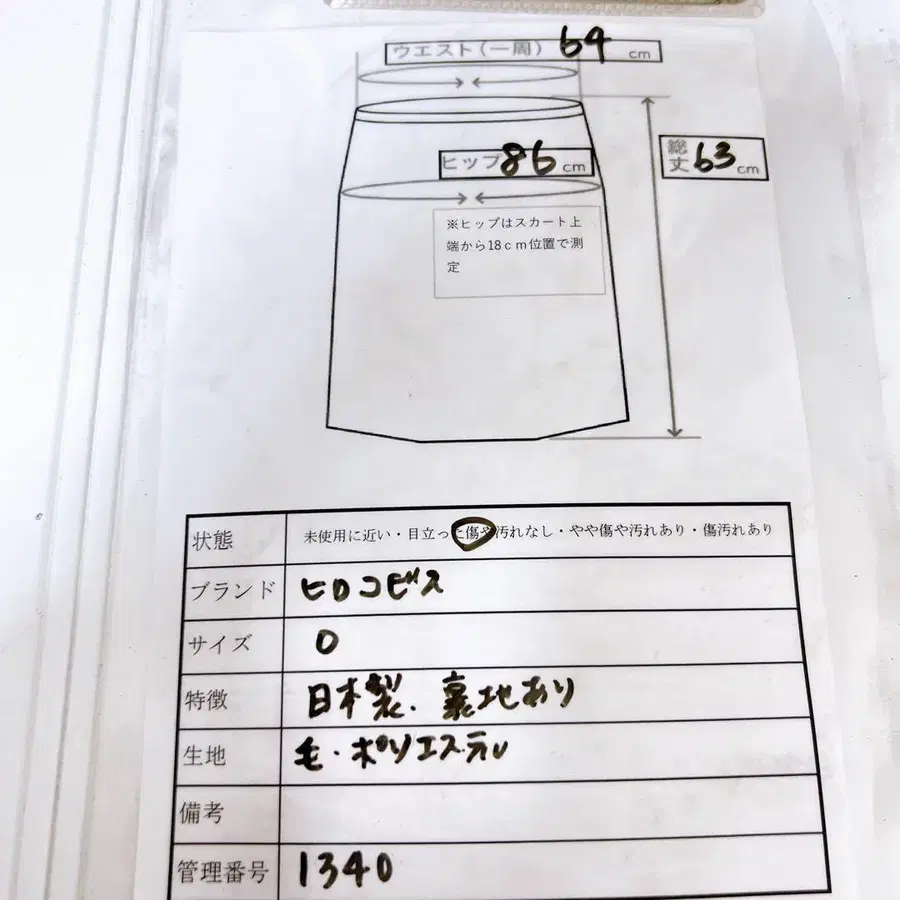 ウエスト(一周) 64 cm
ヒップ 86 cm
総丈 63 cm
※ヒップはスカート上
端から18cm位置で測
定
状態 未使用に近い・目立った傷や汚れなし・やや傷や汚れあり・傷汚れあり
ブランド ヒロコビス
サイズ 0
特徴 日本製. 裏地あり
生地 毛・ポリエステル
備考
管理番号 1340